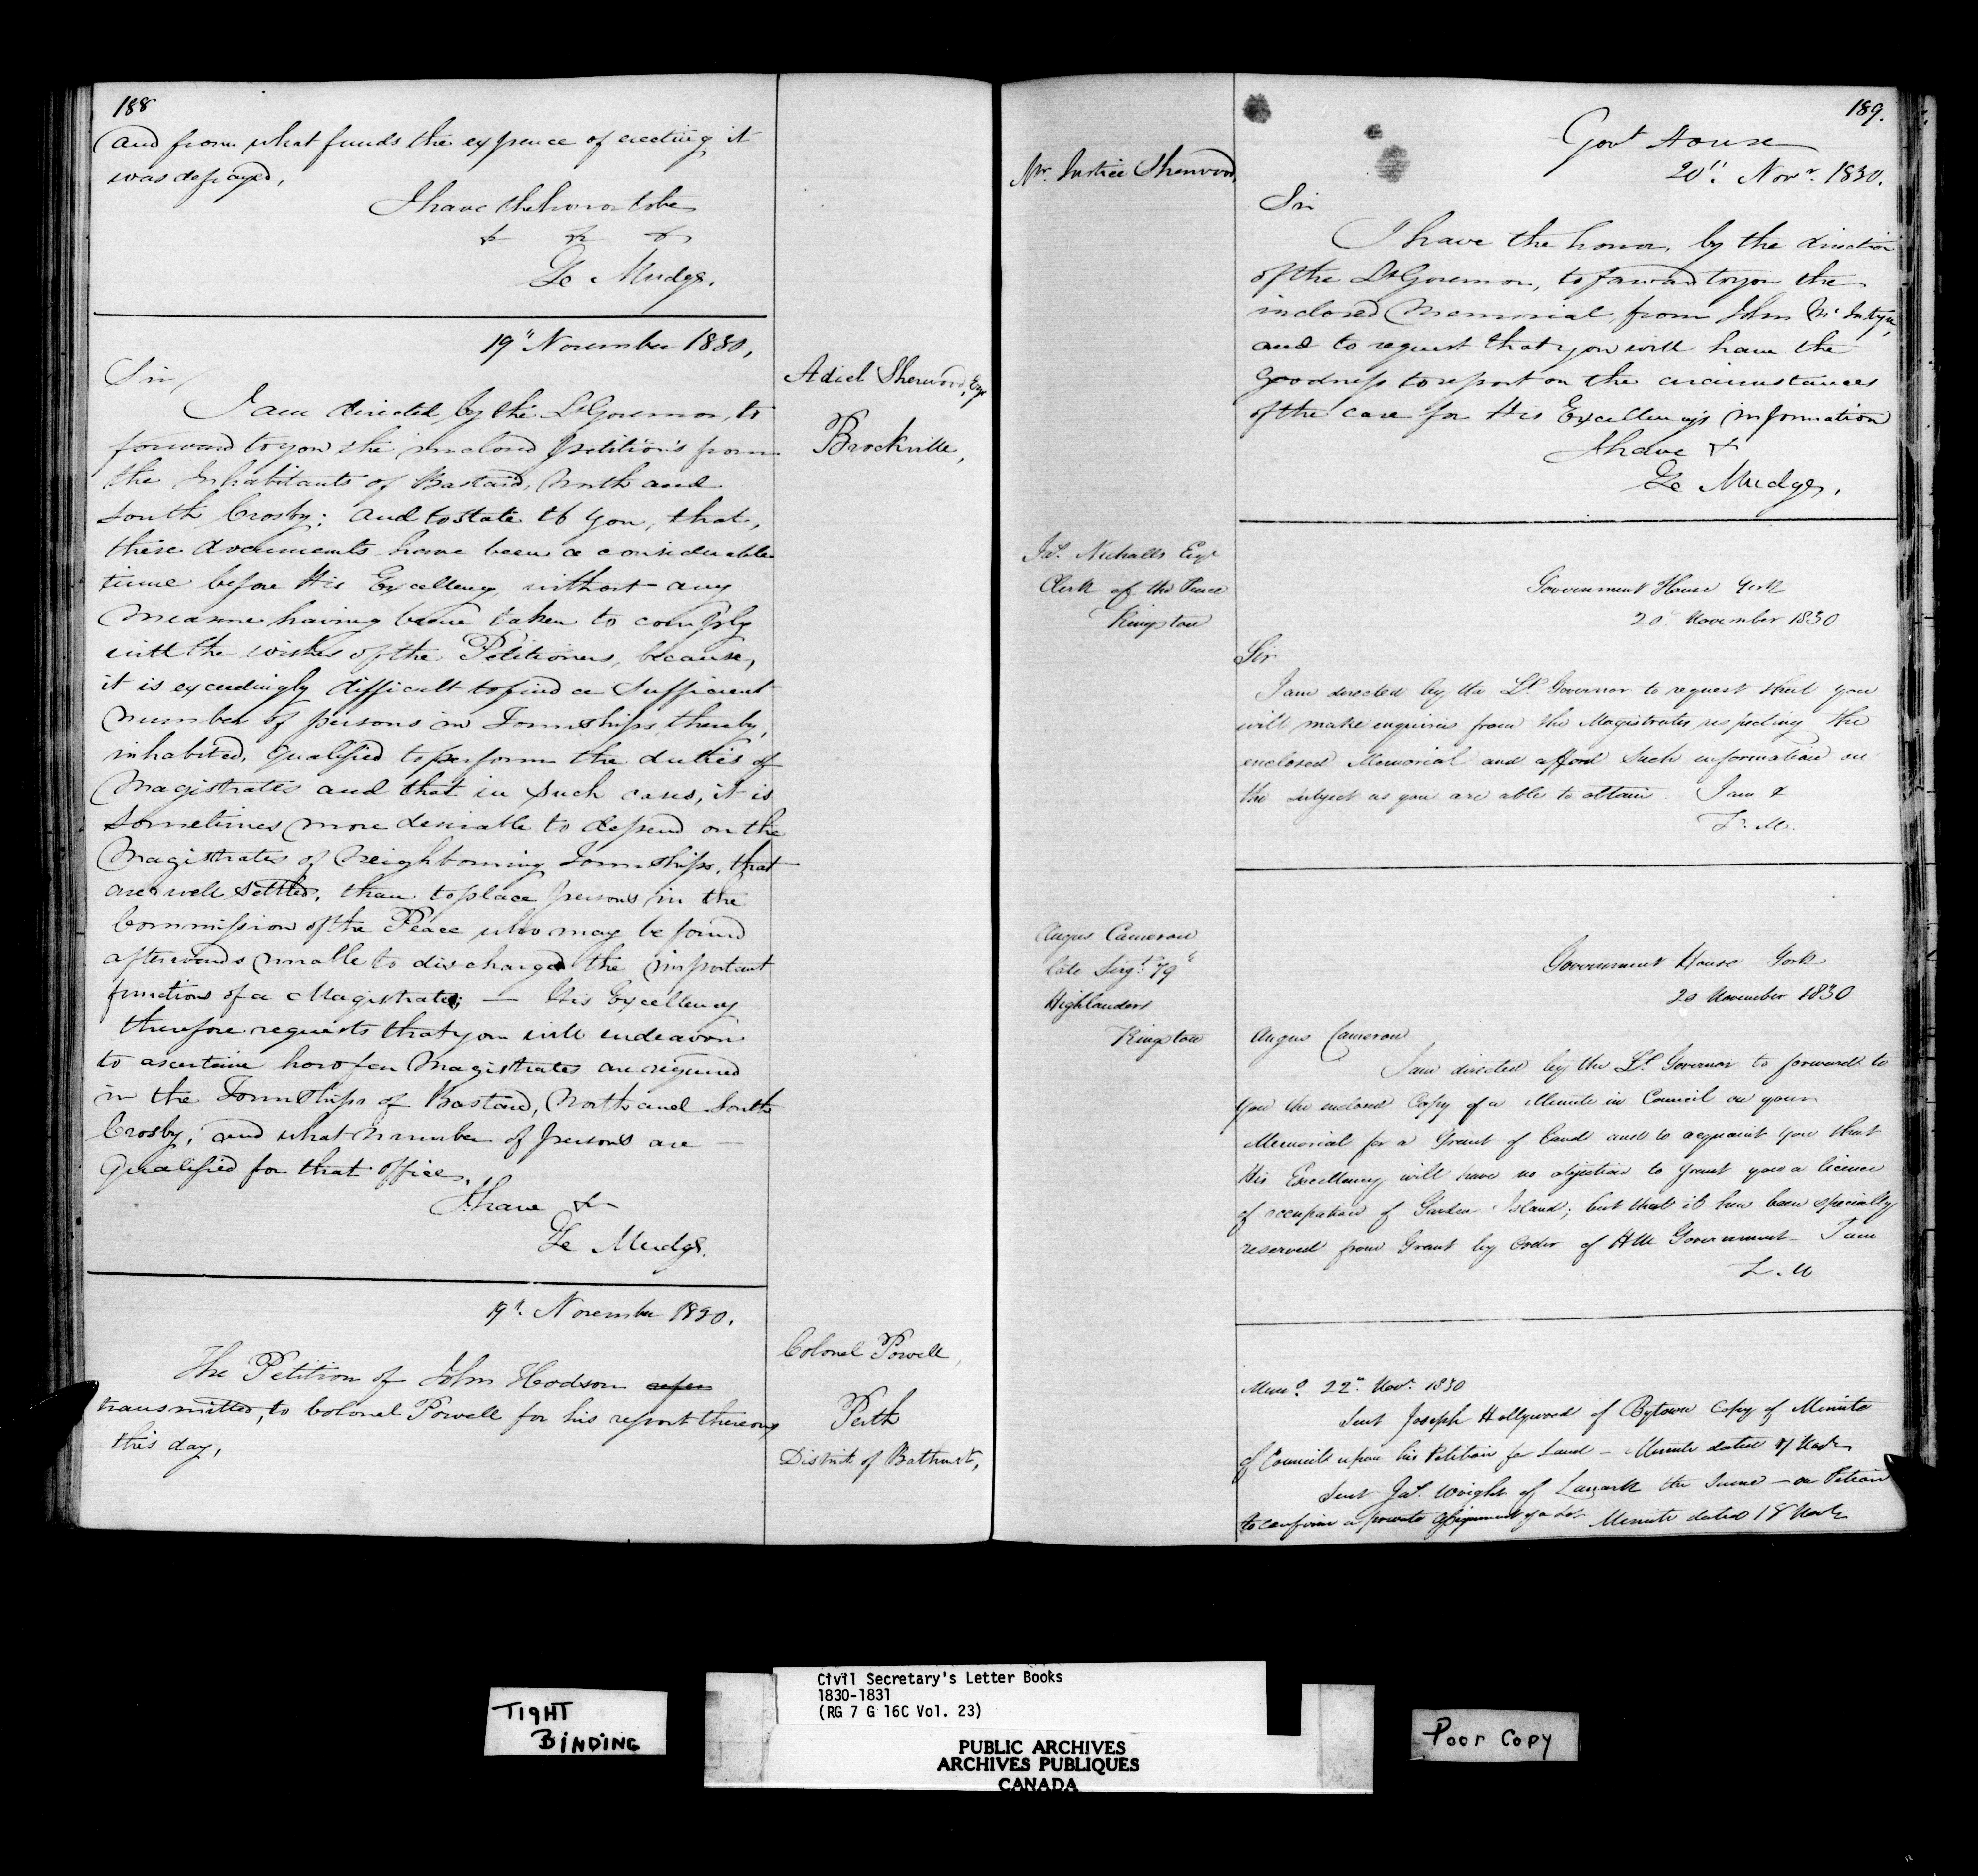 188
and from what funds the expence of erecting it
was defrayed,
I have the honor to be
& & &
Ze Mudge.
19" November 1830,
Adiel Sherwood, Esqr
Brockville,
Sir,
I am directed, by the Lt Governor, to
forward to you the inclosed petition's from
the Inhabitants of Bastard, North and
South Crosby; and to state to you, that,
these documents have been a considerable
time before His Excellency, without any
measure having been taken to comply
with the wishes of the Petitioners, because,
it is exceedingly difficult to find a sufficient
number of persons in Townships, thereby,
inhabited, qualified to perform the duties of
Magistrates and that in such cases, it is
sometimes more desirable to depend on the
Magistrates of Neighbouring Townships, that
are well settled, than to place persons in the
Commission of the Peace who may be found
afterwards unable to discharge the important
functions of a Magistrate; — His Excellency
therefore requests that you will endeavour
to ascertain how far Magistrates are required
in the Townships of Bastard, North and South
Crosby, and what number of persons are —
qualified for that office.
I have &c
Ze Mudge.
19th. November 1830.
Colonel Powell,
Perth
District of Bathurst,
The Petition of John Hodson
transmitted, to Colonel Powell for his report thereon
this day,
189.
Govt House
20". Novr. 1830.
Mr. Justice Sherwood,
Sir
I have the honor, by the direction
of the Lt Governor, to forward to you the
inclosed Memorial, from John Mc Intyre,
and to request that you will have the
goodness to report on the circumstances
of the case for His Excellency's information
I have &
Ze Mudge,
Jas. Nickalls Esqr
Clerk of the Peace
Kingston
Government House York
20th November 1830
Sir
I am directed by the Lt. Governor to request that you
will make enquiries from the Magistrates respecting the
enclosed Memorial and afford such information on
the subject as you are able to obtain. I am &
Z. M.
Angus Cameron
late Sergt. 79th
Highlanders
Kingston
Government House York
20 November 1830
Angus Cameron
I am directed by the Lt. Governor to forward to
you the enclosed Copy of a Minute in Council on your
Memorial for a Grant of Land and to acquaint you that
His Excellency will have no objection to grant you a licence
of occupation of Garden Island; but that it has been specially
reserved from Grant by order of HM Government — I am
Z. M
Memo. 22nd. Novr. 1830
Sent Joseph Hollywood of Bytown Copy of Minute
of Council upon his Petition for Land — Minute dated 17 Novr
Sent Jas. Wright of Lanark the Same — on Petition
to confirm a private assignment of a Lot Minute dated 18 Novr
TIGHT
BINDING
Civil Secretary's Letter Books
1830-1831
(RG 7 G 16C Vol. 23)
PUBLIC ARCHIVES
ARCHIVES PUBLIQUES
CANADA
Poor Copy